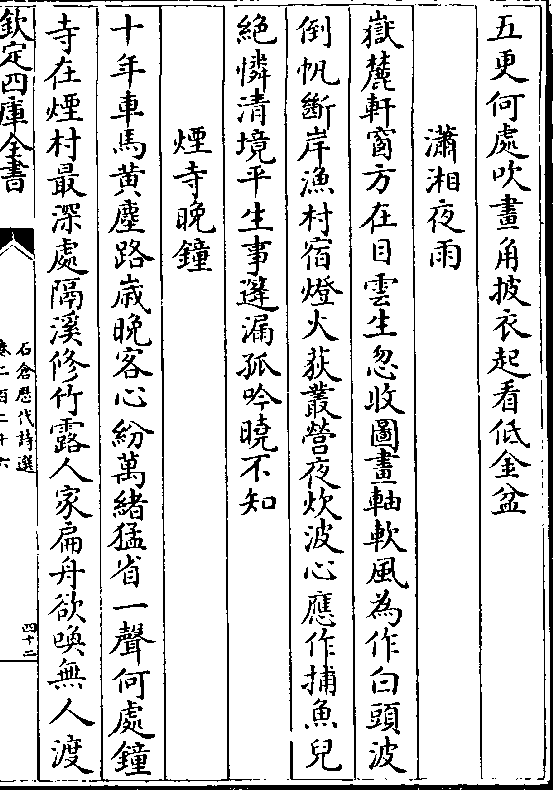 五更何處吹畫角披衣起看低金盆
瀟湘夜雨
嶽麓軒窗方在目雲生忽收圖畫軸軟風為作白頭波
倒帆斷岸漁村宿燈火荻叢營夜炊波心應作捕魚兒
絶憐清境平生事蓬漏孤吟曉不知
煙寺晚鐘
十年車馬黄塵路歳晚客心紛萬緒猛省一聲何處鐘
寺在煙村最深處隔溪修竹露人家扁舟欲喚無人渡
欽定四庫全書
石倉歷代詩選
卷二百二十六
四十二